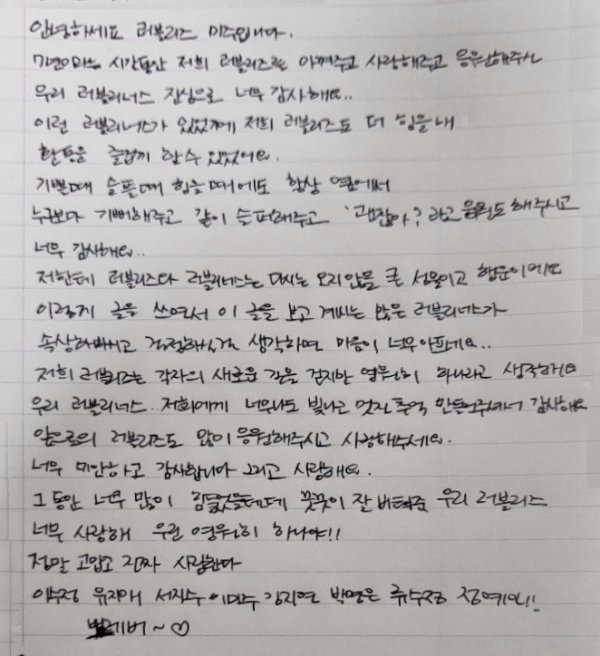 안녕하세요 러블리즈 미주입니다.
7년이라는 시간동안 저희 러블리즈를 아껴주고 사랑해주고 응원해주신
우리 러블리너스 진심으로 너무 감사해요..
이런 러블리너스가 있었기에 저희 러블리즈도 더 힘을 내
활동을 즐겁게 할 수 있었어요.
기쁠때 슬플때 힘들때에도 항상 옆에서
누구보다 기뻐해주고 같이 슬퍼해주고 '괜찮아? 라고 응원도 해주시고
너무 감사해요..
저한테 러블리즈와 러블리너스는 다시는 오지 않을 큰 선물이고 행운이에요
이렇게 글을 쓰면서 이 글을 보고 계시는 많은 러블리너스가
속상해하시고 걱정하실걸 생각하면 마음이 너무 아프네요..
저희 러블리즈는 각자의 새로운 길을 걷지만 영원히 하나라고 생각해요
우리 러블리너스.. 저희에게 너무나도 빛나고 멋진 추억 만들어주셔서 감사해요
앞으로의 러블리즈도 많이 응원해주시고 사랑해주세요.
너무 미안하고 감사합니다 그리고 사랑해요.
그 동안 너무 많이 힘들었을텐데 꿋꿋이 잘 버텨준 우리 러블리즈
너무 사랑해 우린 영원히 하나야!!
정말 고맙고 진짜 사랑한다
이수정 유지애 서지수 이미주 김지연 박명은 류수정 정예인!!
뽀레버~♡